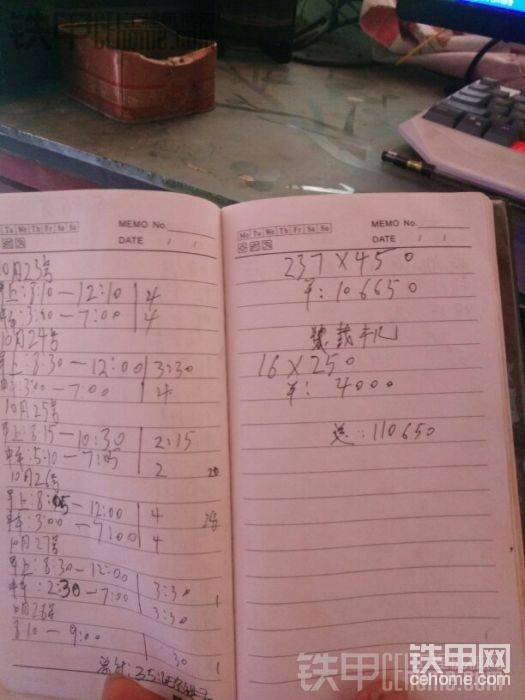 铁甲 CEhome.com
Tu We Th Fr Sa Su
MEMO No.
DATE / /
10月23号
早上:8:10—12:10 4
3:00—7:00 4
10月24号
早上:8:30—12:00 3:30
3:00—7:00 4
10月25号
早上:8:15—10:30 2:15
5:10—7:05 2
10月26号
早上:8:05—12:00 4
3:00—7:00 4
10月27号
早上:8:30—12:00 3:30
2:30—7:00 3:30
8:10—9:00 30
Mo Tu We Th Fr Sa Su
MEMO No.
DATE / /
237×450
106650
16×250
4000
110650
铁甲 CEhome.com
铁甲网
cehome.com